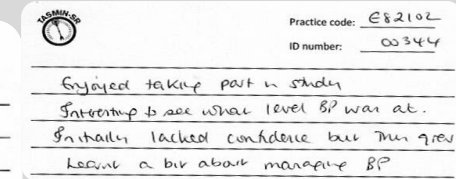 TASMIN-SR
Practice code: E82102
ID number: 00344
Enjoyed taking part in study
Interesting to see what level BP was at.
Initially lacked confidence but this grew
Learnt a bit about managing BP